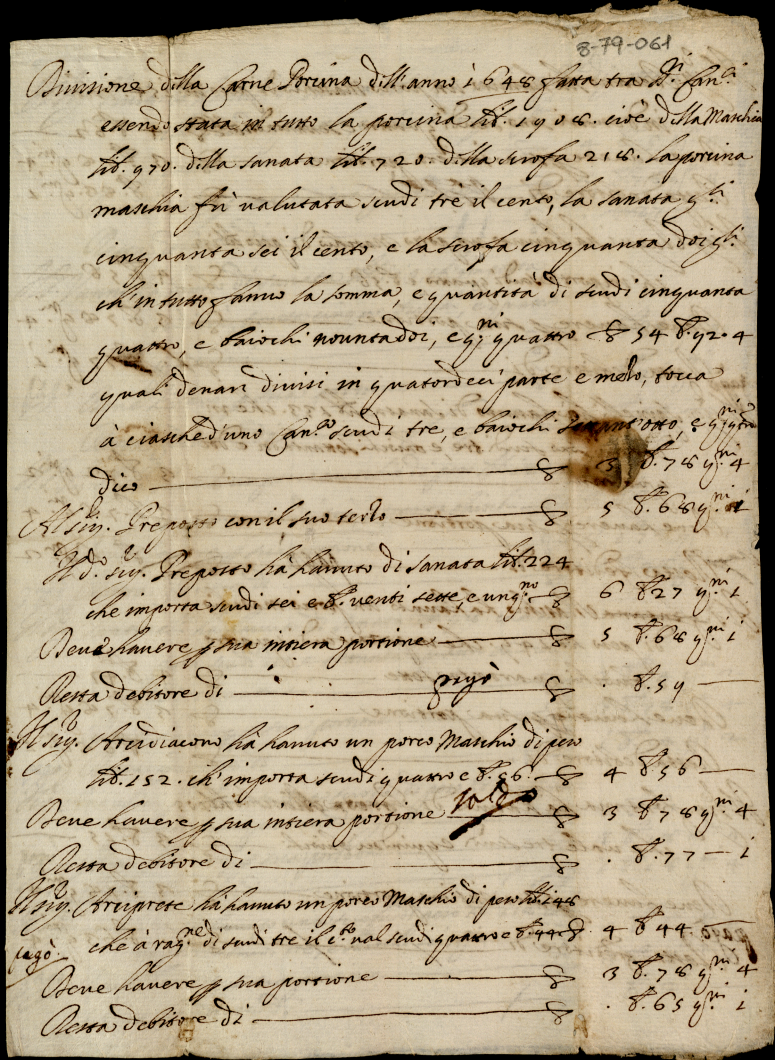 8-79-061
Divisione della Carne Porcina dell'anno i648 fatta tra SS.ri Can.ci
essendo stata in tutto la porcina lib. 1908. cioè della Maschia
lib. 970. della sanata lib. 720. della scrofa 218. la porcina
maschia fù valutata scudi trè il cento, la sanata g.li
cinquanta sei il cento, e la scrofa cinquanta doi g.li
ch'in tutto fanno la somma, e quantità di scudi cinquanta
quattro, e baiochi nouanta doi, e q.ni quattro — 54 b. 92. 4
quali denari divisi in quatordeci parte e mezo, tocca
à ciasched'uno Can.co scudi tre, e baiochi settant'otto, e q.ni
dico — 3 b. 78 q.ni 4
Al sig. Preposto con il suo terzo — 5 b. 68 q.ni i
Il d.o sig. Preposto hà hauuto di sanata lib. 224
che importa scudi sei e b. venti sette, e un q.no — 6 b 27 q.ni i
Deve havere p sua intiera portione — 5 b. 68 q.ni i
Resta debitore di — pagò — . b. 59 —
Il sig. Arcidiacono hà hauuto un porco Maschio di peso
lib. 152. ch'importa scudi quattro e b. 56. — 4 b 56 —
Deve havere p sua intiera portione — 3 b 78 q.ni 4
Resta debitore di — . b. 77 — i
Il sig. Arciprete hà hauuto un porco Maschio di peso lib. 148
che à rag.ne di scudi tre il c.to val scudi quattro e b. 44. 4 b 44. —
pagò.
Deve havere p sua portione — 3 b. 78 q.ni 4
Resta debitore di — . b. 65 q.ni i